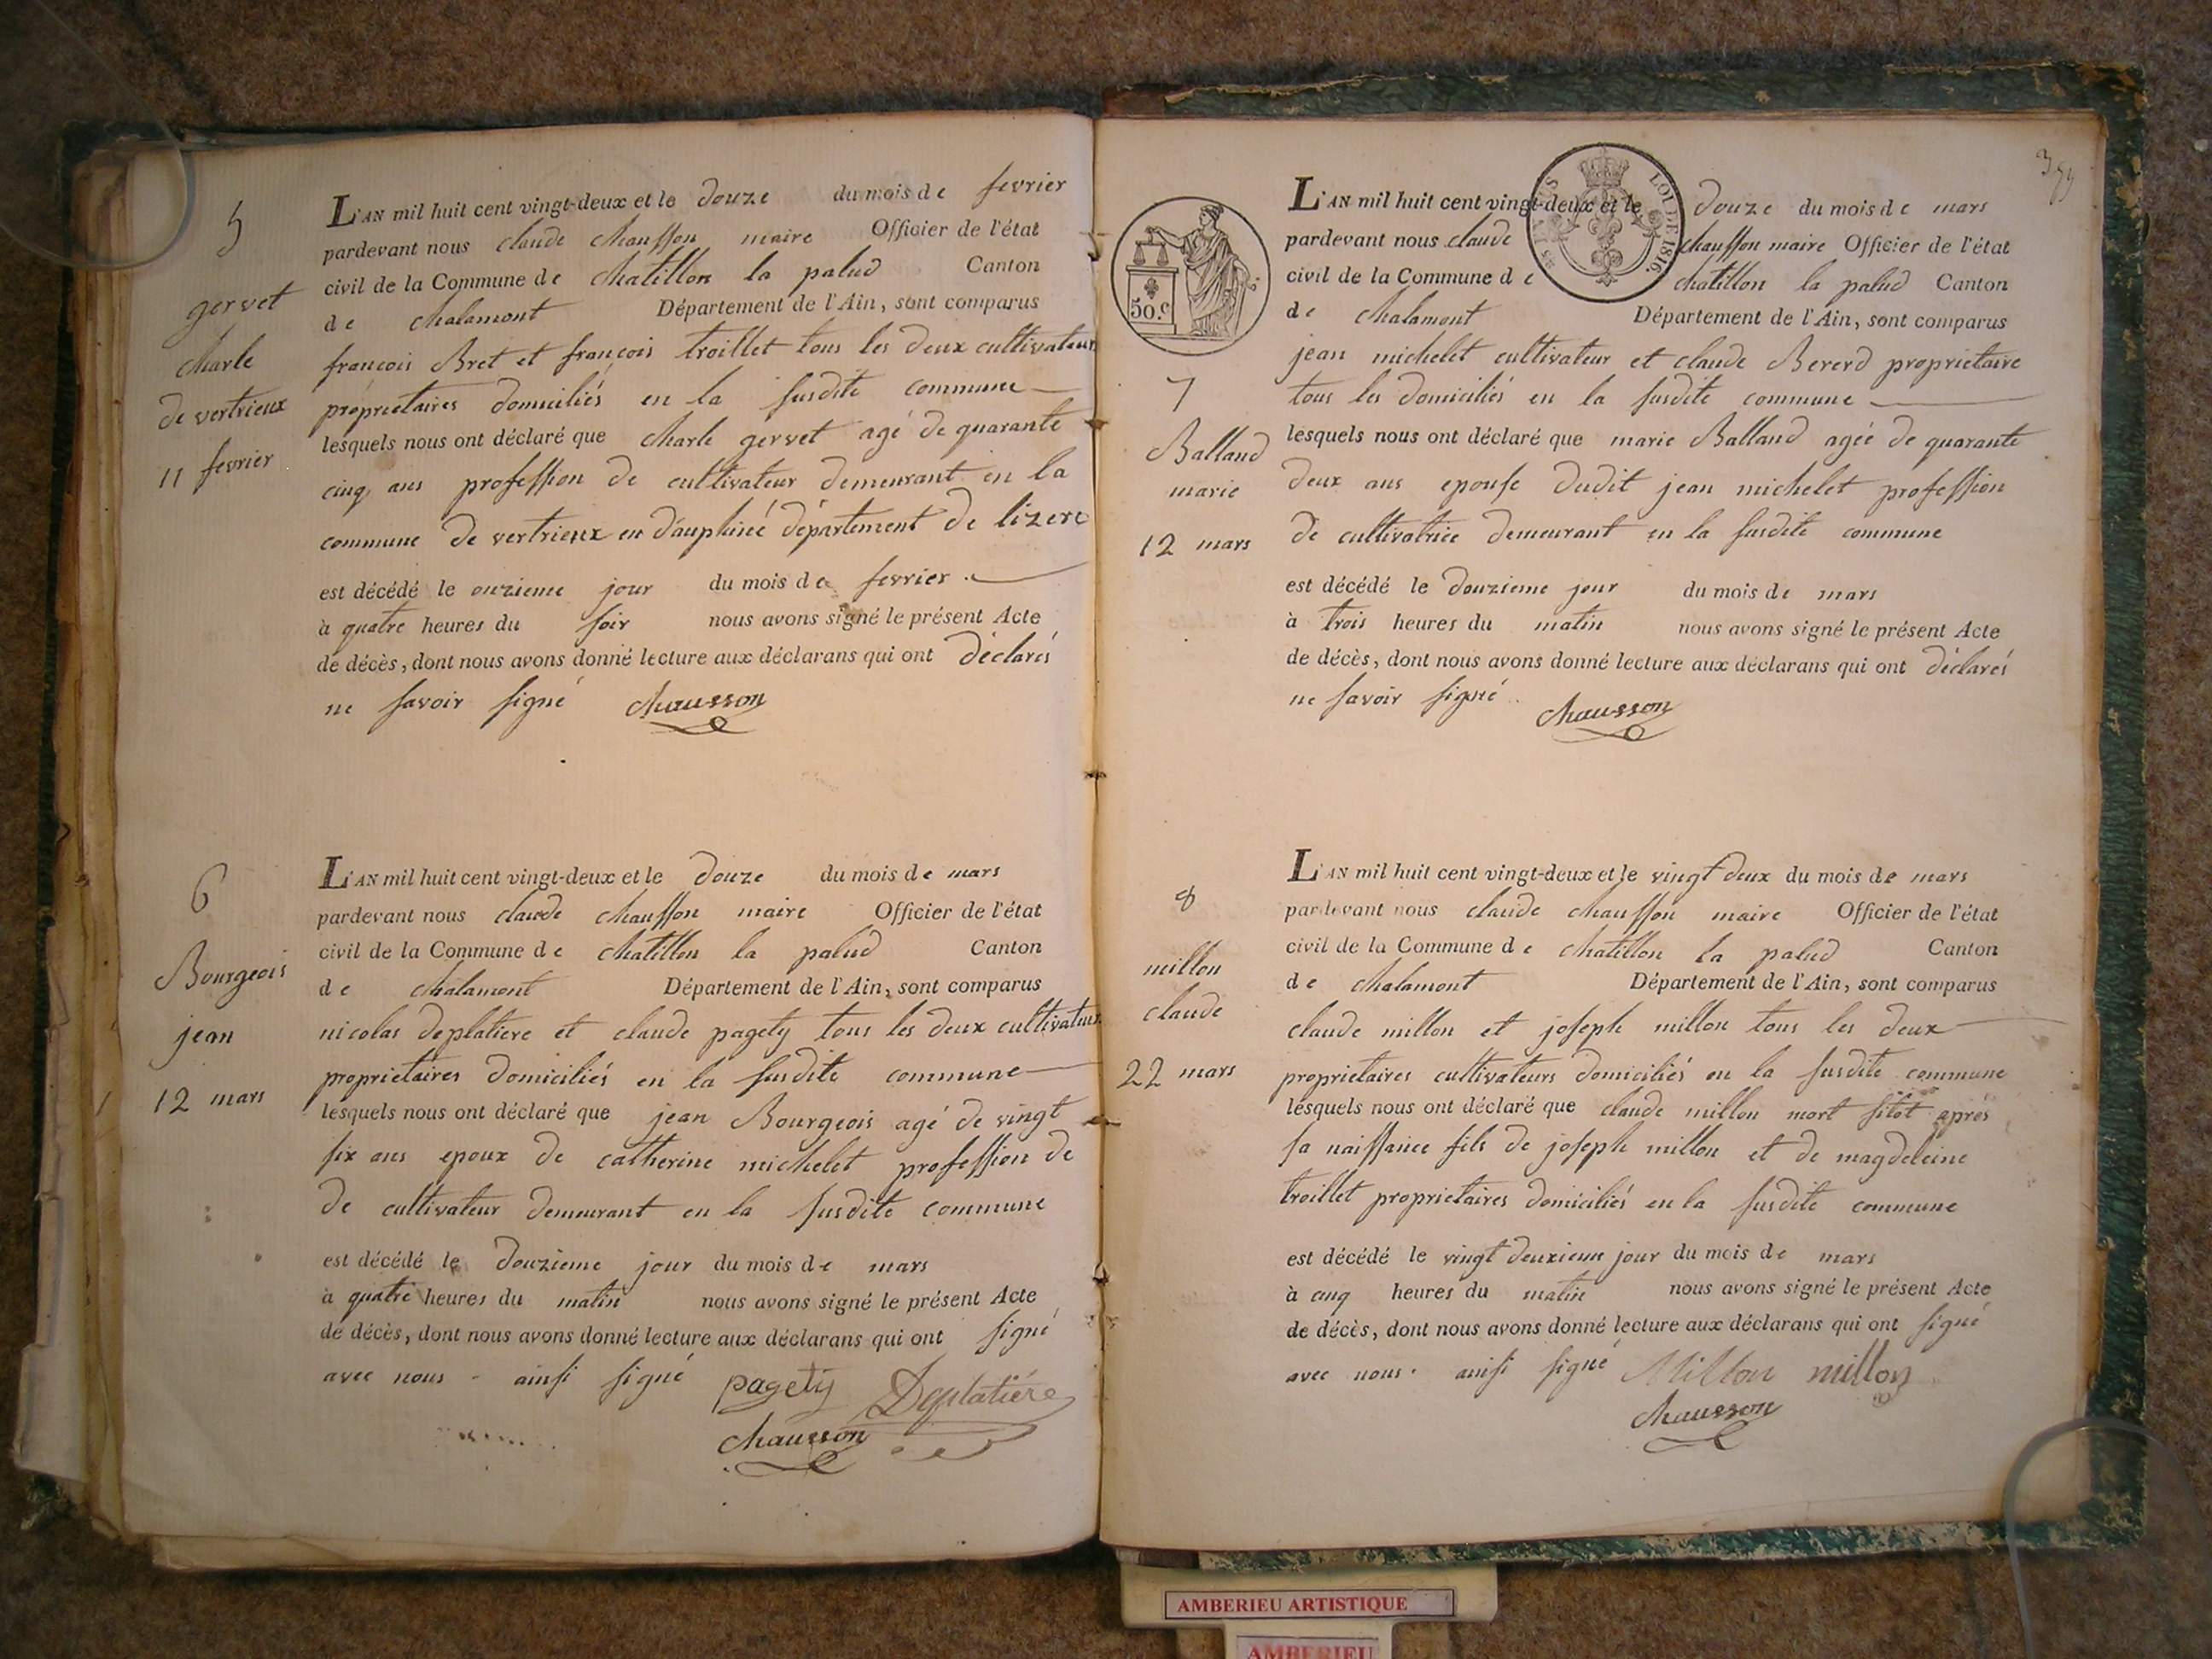 5
gervet
charle
de vertrieux
11 fevrier
L'AN mil huit cent vingt-deux et le douze du mois de fevrier
pardevant nous claude chausson maire Officier de l'état
civil de la Commune de chatillon la palud Canton
de chalamont Département de l'Ain, sont comparus
françois Bret et françois troillet tous les deux cultivateurs
propriétaires domiciliés en la susdite commune
lesquels nous ont déclaré que charle gervet agé de quarante
cinq ans profession de cultivateur demeurant en la
commune de vertrieux en dauphinée département de lizere
est décédé le onzieme jour du mois de fevrier
à quatre heures du soir nous avons signé le présent Acte
de décès, dont nous avons donné lecture aux déclarans qui ont déclarés
ne savoir signé chausson
6
Bourgeois
jean
12 mars
L'AN mil huit cent vingt-deux et le douze du mois de mars
pardevant nous claude chausson maire Officier de l'état
civil de la Commune de chatillon la palud Canton
de chalamont Département de l'Ain, sont comparus
nicolas deplatiere et claude pagety tous les deux cultivateurs
proprietaires domiciliés en la susdite commune
lesquels nous ont déclaré que jean Bourgeois agé de vingt
six ans epoux de catherine michelet profession de
de cultivateur demeurant en la susdite commune
est décédé le douzieme jour du mois de mars
à quatre heures du matin nous avons signé le présent Acte
de décès, dont nous avons donné lecture aux déclarans qui ont signé
avec nous - ainsi signé pagety Deplatiére
chausson
50.c
LOI DE 1816.
7
Balland
marie
12 mars
L'AN mil huit cent vingt-deux et le douze du mois de mars
pardevant nous claude chausson maire Officier de l'état
civil de la Commune de chatillon la palud Canton
de chalamont Département de l'Ain, sont comparus
jean michelet cultivateur et claude Bererd proprietaire
tous les domiciliés en la susdite commune
lesquels nous ont déclaré que marie Balland agée de quarante
deux ans epouse dudit jean michelet profession
de cultivatrice demeurant en la susdite commune
est décédé le douzieme jour du mois de mars
à trois heures du matin nous avons signé le présent Acte
de décès, dont nous avons donné lecture aux déclarans qui ont déclarés
ne savoir signé chausson
8
millon
claude
22 mars
L'AN mil huit cent vingt-deux et le vingt deux du mois de mars
pardevant nous claude chausson maire Officier de l'état
civil de la Commune de chatillon la palud Canton
de chalamont Département de l'Ain, sont comparus
claude millon et joseph millon tous les deux
proprietaires cultivateurs domiciliés en la susdite commune
lesquels nous ont déclaré que claude millon mort sitot après
sa naissance fils de joseph millon et de magdeleine
troillet proprietaires domiciliés en la susdite commune
est décédé le vingt deuxieme jour du mois de mars
à cinq heures du matin nous avons signé le présent Acte
de décès, dont nous avons donné lecture aux déclarans qui ont signé
avec nous. ainsi signé Millon millon
chausson
AMBERIEU ARTISTIQUE
AMBERIEU